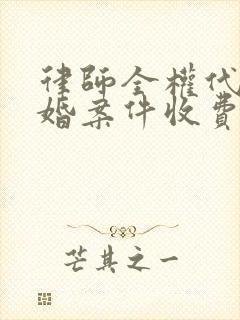 律師全權代
婚案件收費
芒其之一